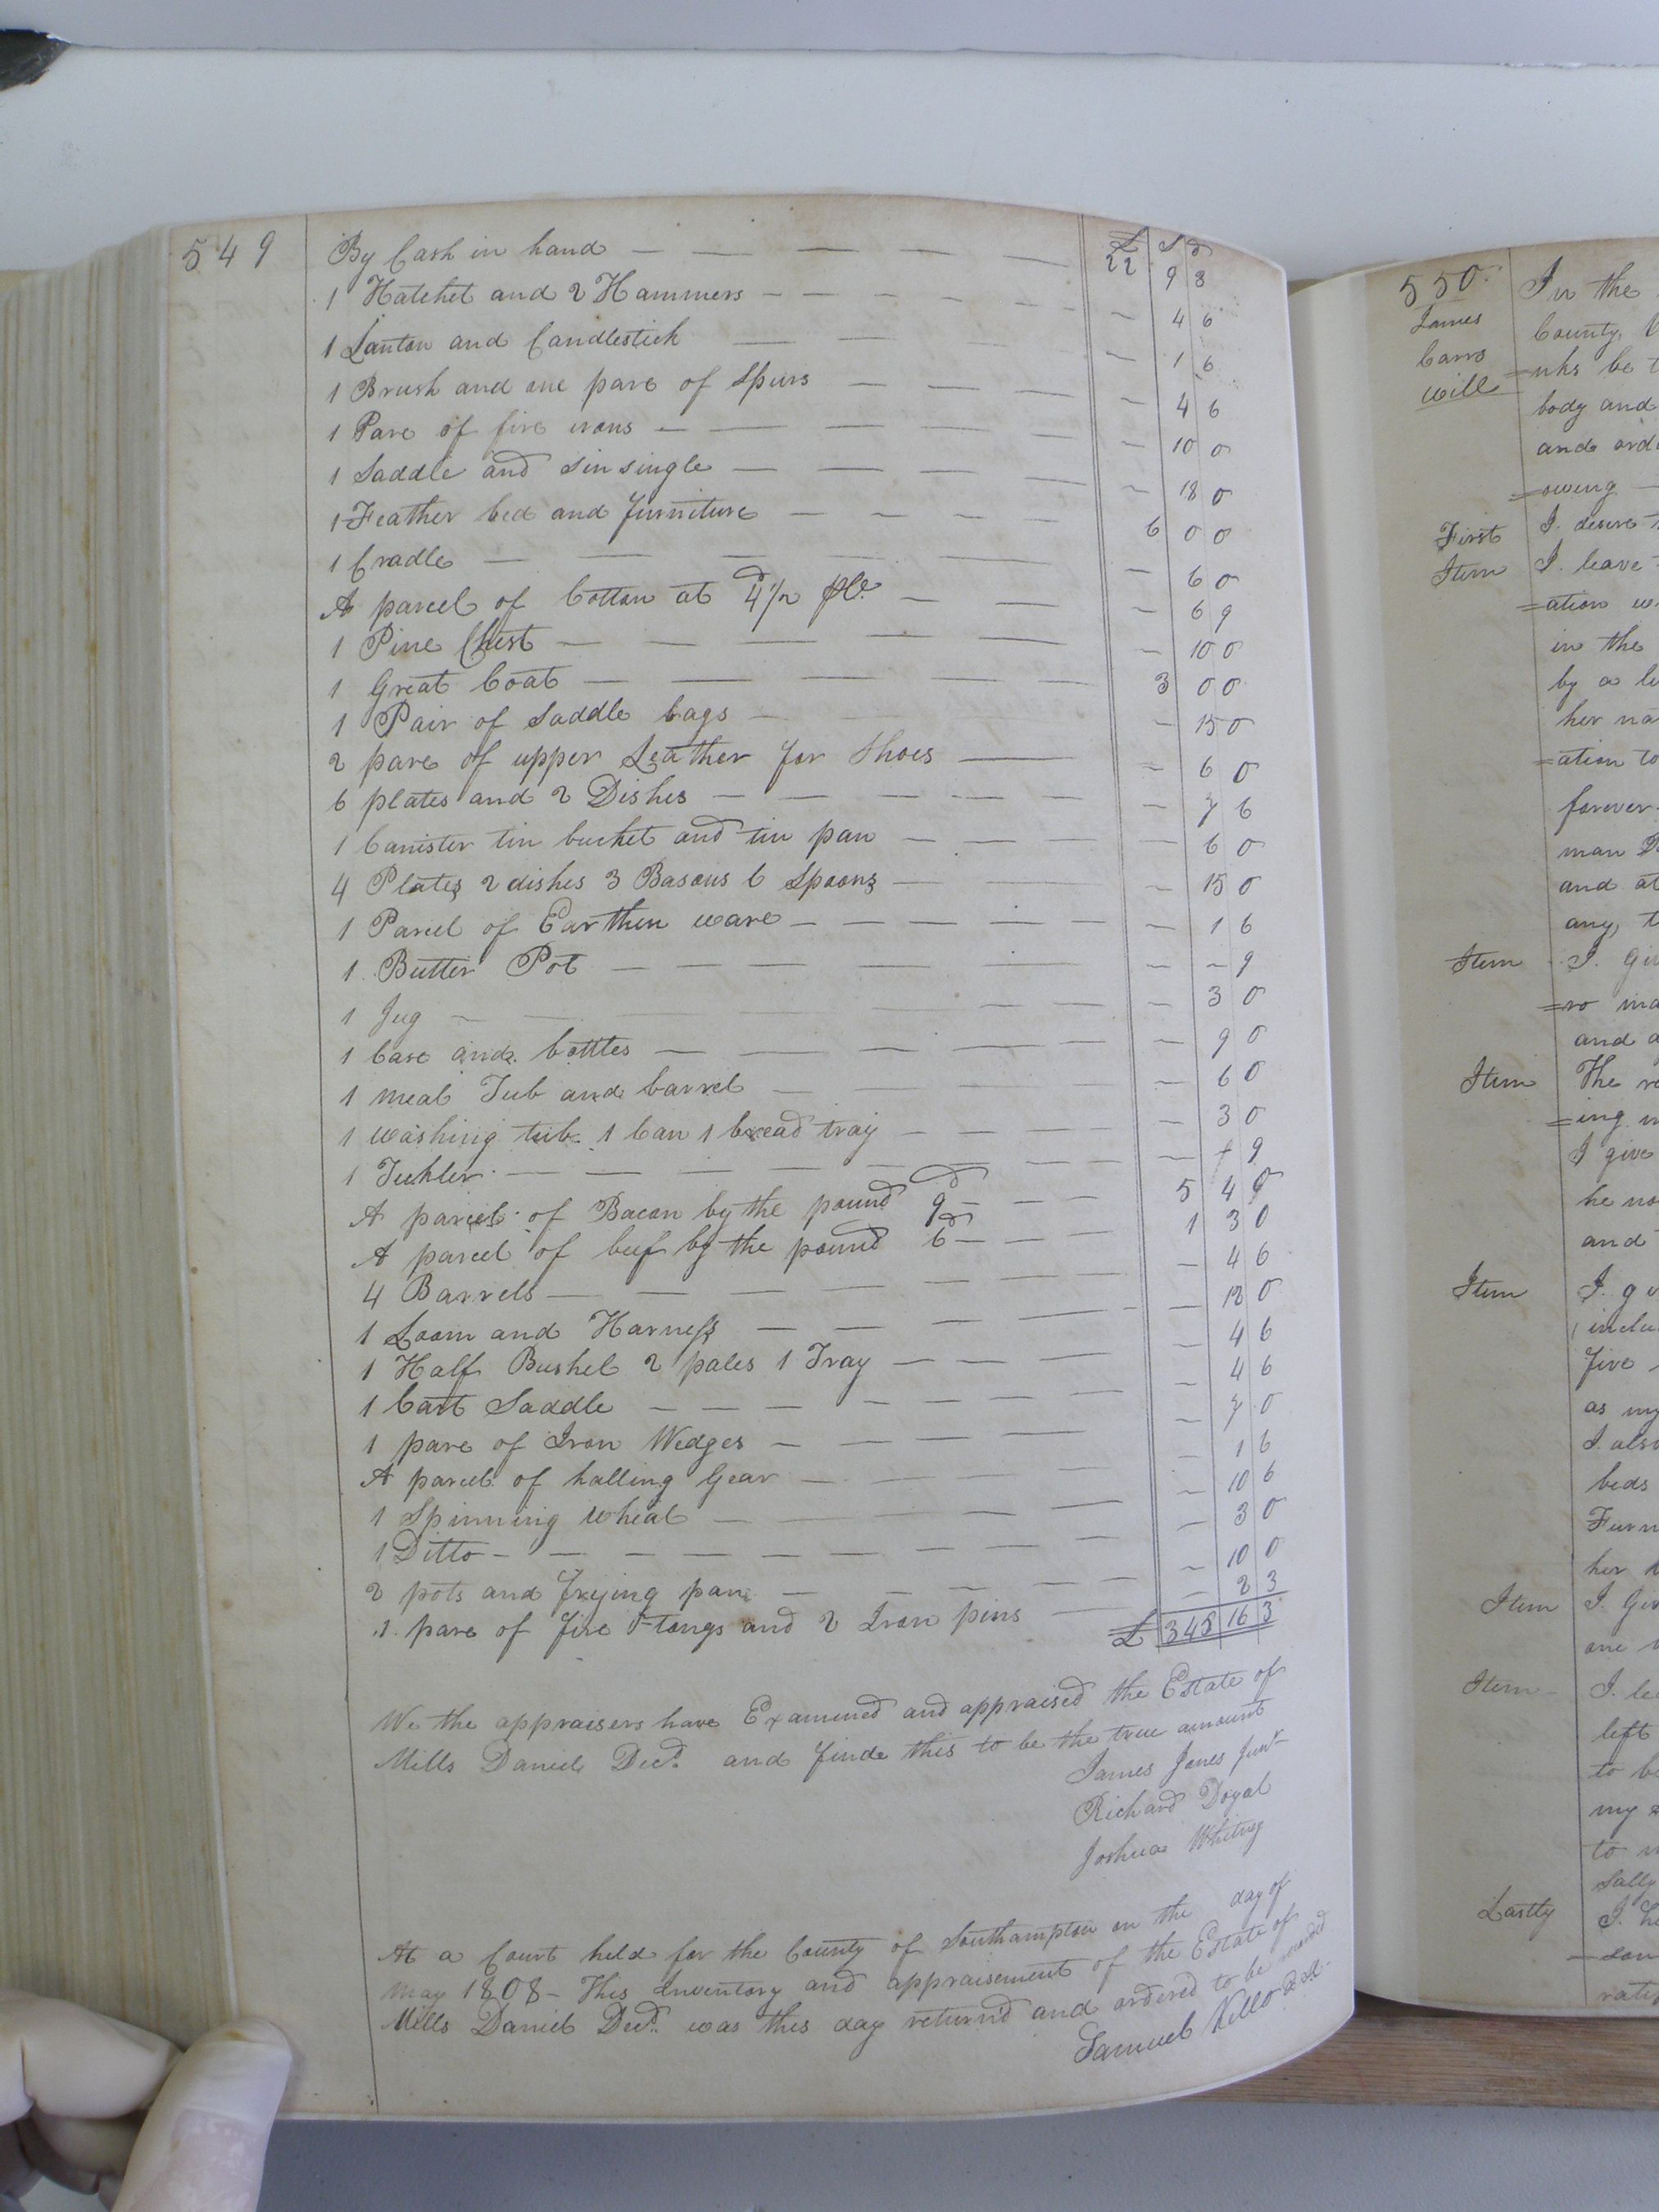 549
£ S D
By Cash in hand — — — — — — 22 9 3
1 Hatchet and 2 Hammers — — — — — — 4 6
1 Lanton and Candlestick — — — — 1 6
1 Brush and one pare of Spurs — — — — 4 6
1 Pare of fire irons — — — — — — 10 0
1 Saddle and Sinsingle — — — — 18 0
1 Feather bed and furniture — — — — 6 0 0
1 Cradle — — — — — — 6 0
A parcel of Cotton at 4½ — — — 6 9
1 Pine Chest — — — — — 10 0
1 Great Coat — — — — — 3 0 0
1 Pair of Saddle bags — — 15 0
2 pare of upper Leather for Shoes — — — 6 0
6 plates and 2 Dishes — — — — — — 7 6
1 Canister tin bucket and tin pan — — — — 6 0
4 Plates 2 dishes 3 Basons 6 Spoons — — — 15 0
1 Parcel of Earthen ware — — — — — 1 6
1 Butter Pot — — — — — — — 9
1 Jug — — — — — — 3 0
1 Case and bottles — — — — — — 9 0
1 meal Tub and barrel — — — — 6 0
1 washing tub 1 Can 1 bread tray — — — — 3 0
1 — — — — — — — 9
A parcel of Bacon by the pound 9d — — 5 4 9
A parcel of beef by the pound 6d — — — 1 3 0
4 Barrels — — — — — — — 4 6
1 Loom and Harness — — — — — 12 0
1 Half Bushel 2 pales 1 Tray — — — — 4 6
1 Cart Saddle — — — — — — 4 6
1 pare of Iron Wedges — — — — — 7 0
A parcel of halling Gear — — — — 1 6
1 Spinning wheal — — — — — 10 6
1 Ditto — — — — — — — — 3 0
2 pots and frying pan — — — — — 10 0
1 pare of fire tongs and 2 Iron pins — — 2 3
£ 345 16 3
We the appraisers have Examined and appraised the Estate of
Mills Daniel Decd. and finde this to be the true amount
James Jones Junr
Richard Doyal
Joshua Whitney
At a Court held for the County of Southampton on the day of
May 1808 – This Inventory and appraisement of the Estate of
Mills Daniel Decd. was this day returnd and ordered to be recorded
Samuel Kello
550.
James
Carrs
will
In the
County, V
=nhs be t
body and
and ord
=owing
First I desire
Item I leave
=ation w
in the
by a le
her na
=ation to
forever
man
and at
any, t
Item I Giv
=ro
and a
Item The re
=ing
I give
he no
and
Item I g
inclu
five
as my
I also
beds
Furn
her
Item I Giv
one
Item I le
left
to be
my
to
Sally
Lastly I he